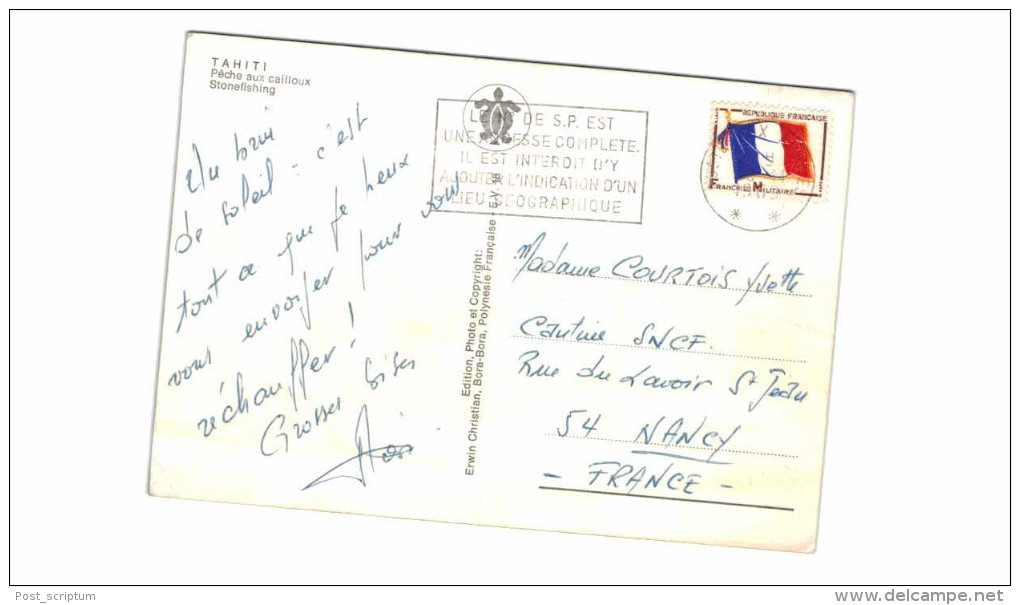 TAHITI
Pêche aux cailloux
Stonefishing
Un brin
de soleil = c'est
tout ce que je peux
vous envoyer pour vous
réchauffer !
Grosses bises
Edition, Photo et Copyright:
Erwin Christian, Bora-Bora, Polynésie Française -
DE S.P. EST
UNE ADRESSE COMPLETE.
IL EST INTERDIT D'Y
AJOUTER L'INDICATION D'UN
LIEU GEOGRAPHIQUE
REPUBLIQUE FRANÇAISE
FRANCHISE MILITAIRE
Madame COURTOIS Yvette
Cantine SNCF.
Rue du Lavoir St Jean
54 NANCY
- FRANCE -
Post_scriptum
delcampe.net